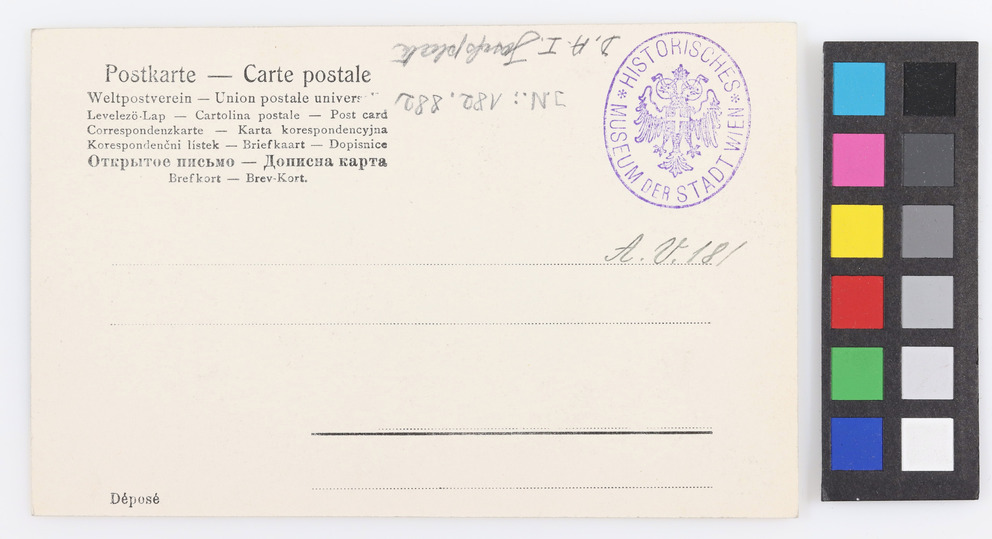 Postkarte — Carte postale
Weltpostverein — Union postale univers
Levelező-Lap — Cartolina postale — Post card
Correspondenzkarte — Karta korespondencyjna
Korespondenční lístek — Briefkaart — Dopisnice
Открытое письмо — Дописна карта
Brefkort — Brev-Kort.
D. A. I. Josefsplatz
JN.: 182.882
* HISTORISCHES * MUSEUM DER STADT WIEN
A. V. 181
Déposé